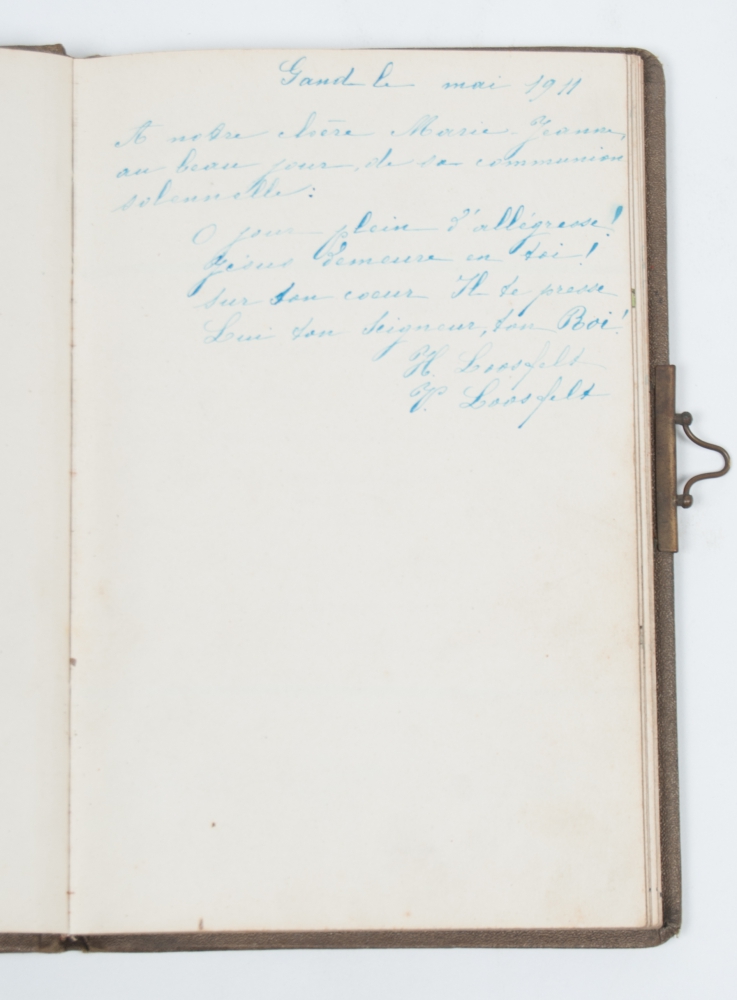 Gand le mai 1911
A notre chère Marie-Jeanne,
au beau jour de sa communion
solennelle:
O jour plein d'allégresse!
Jésus demeure en toi!
Sur ton coeur Il te presse
Lui ton Seigneur, ton Roi!
H. Loosfelt
P. Loosfelt